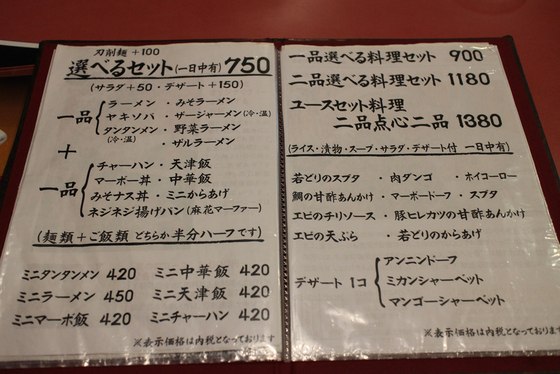 刀削麺 +100
選べるセット(一日中有) 750
(サラダ +50・デザート +150)
一品
ラーメン ・みそラーメン
ヤキソバ ・ザージャーメン(冷・温)
タンタンメン ・野菜ラーメン
(冷・温)
・ザルラーメン
+
一品
チャーハン・天津飯
マーボー丼・中華飯
みそナス丼・ミニからあげ
ネジネジ揚げパン(麻花マーファー)
(麺類+ご飯類 どちらか半分ハーフです)
ミニタンタンメン 420 ミニ中華飯 420
ミニラーメン 450 ミニ天津飯 420
ミニマーボ飯 420 ミニチャーハン 420
※表示価格は内税となっております
一品選べる料理セット 900
二品選べる料理セット 1180
ユースセット料理
二品点心二品 1380
(ライス・漬物・スープ・サラダ・デザート付 一日中有)
若どりのスブタ ・肉ダンゴ ・ホイコーロー
鯛の甘酢あんかけ ・マーボードーフ ・スブタ
エビのチリソース ・豚ヒレカツの甘酢あんかけ
エビの天ぷら ・若どりのからあげ
デザート 1コ
アンニンドーフ
ミカンシャーベット
マンゴーシャーベット
※表示価格は内税となっております